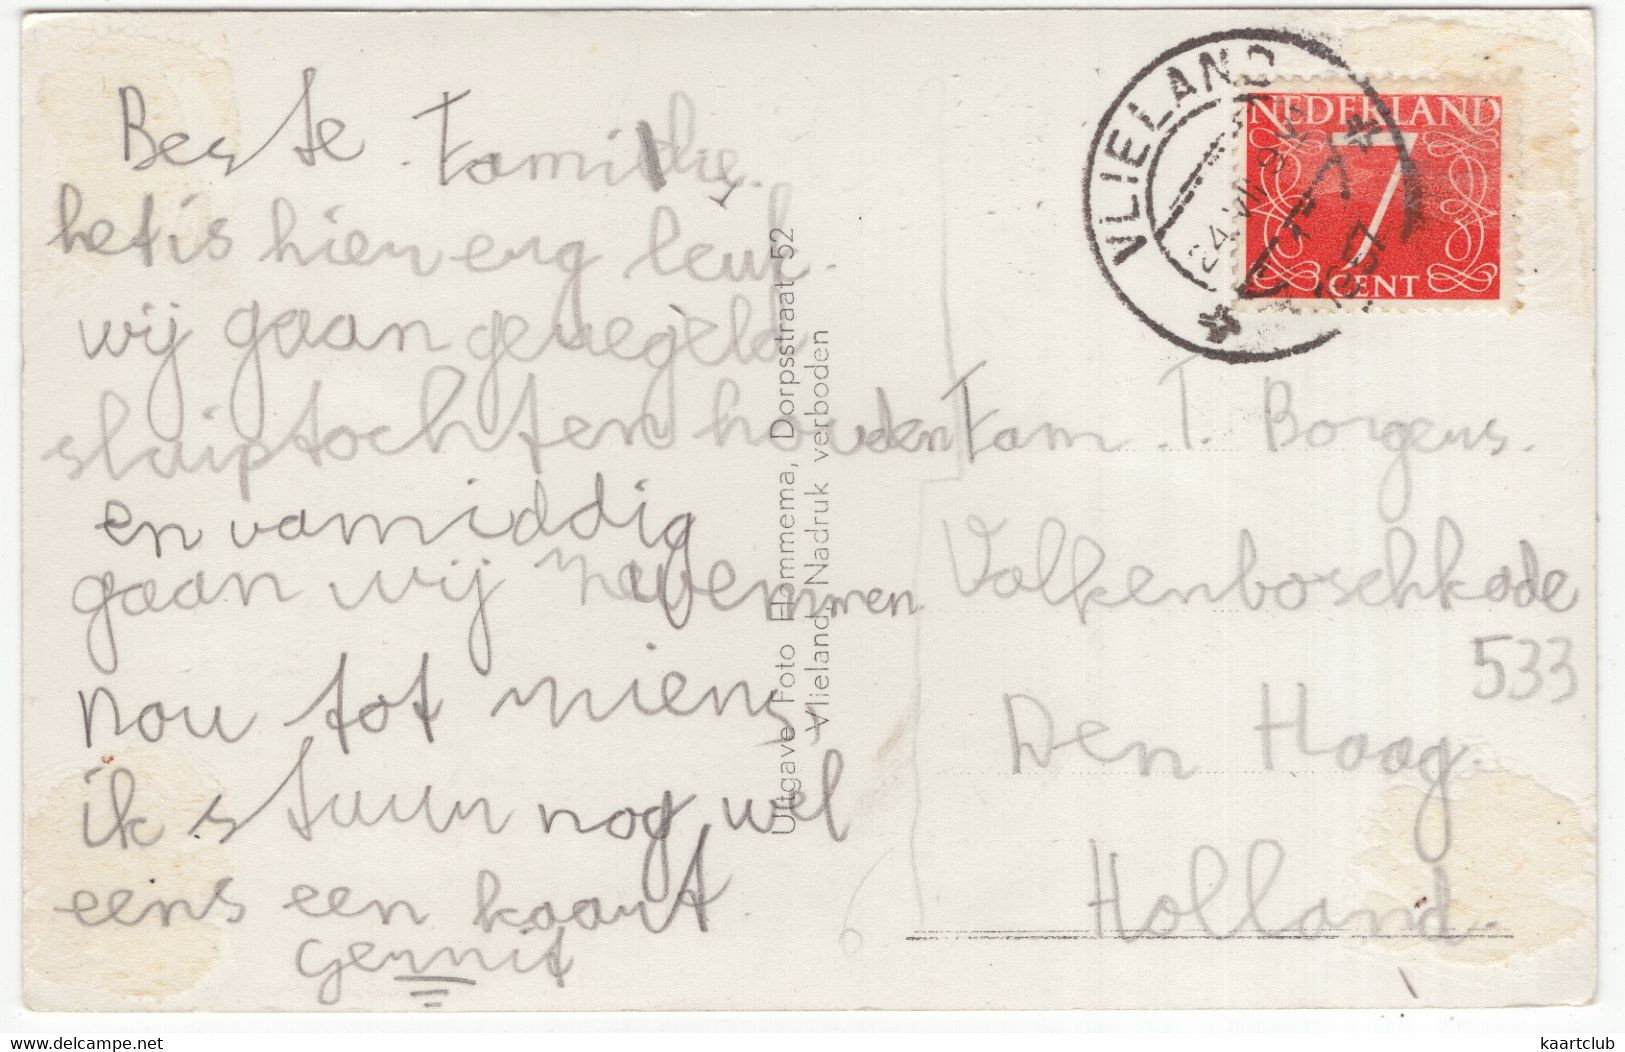 Beste Familie.
het is hier erg leuk.
wij gaan geregeld
sluiptochten houden
en vamiddig
gaan wij zwemmen
nou tot ziens
ik stuur nog wel
eens een kaart
Gerrit
Uitgave Foto Hommema, Dorpsstraat 52
Vlieland, Nadruk verboden
VLIELAND
1957
NEDERLAND
7
CENT
Fam. T. Borgers.
Valkenboschkade
533
Den Haag.
Holland.
6
delcampe.net
kaartclub